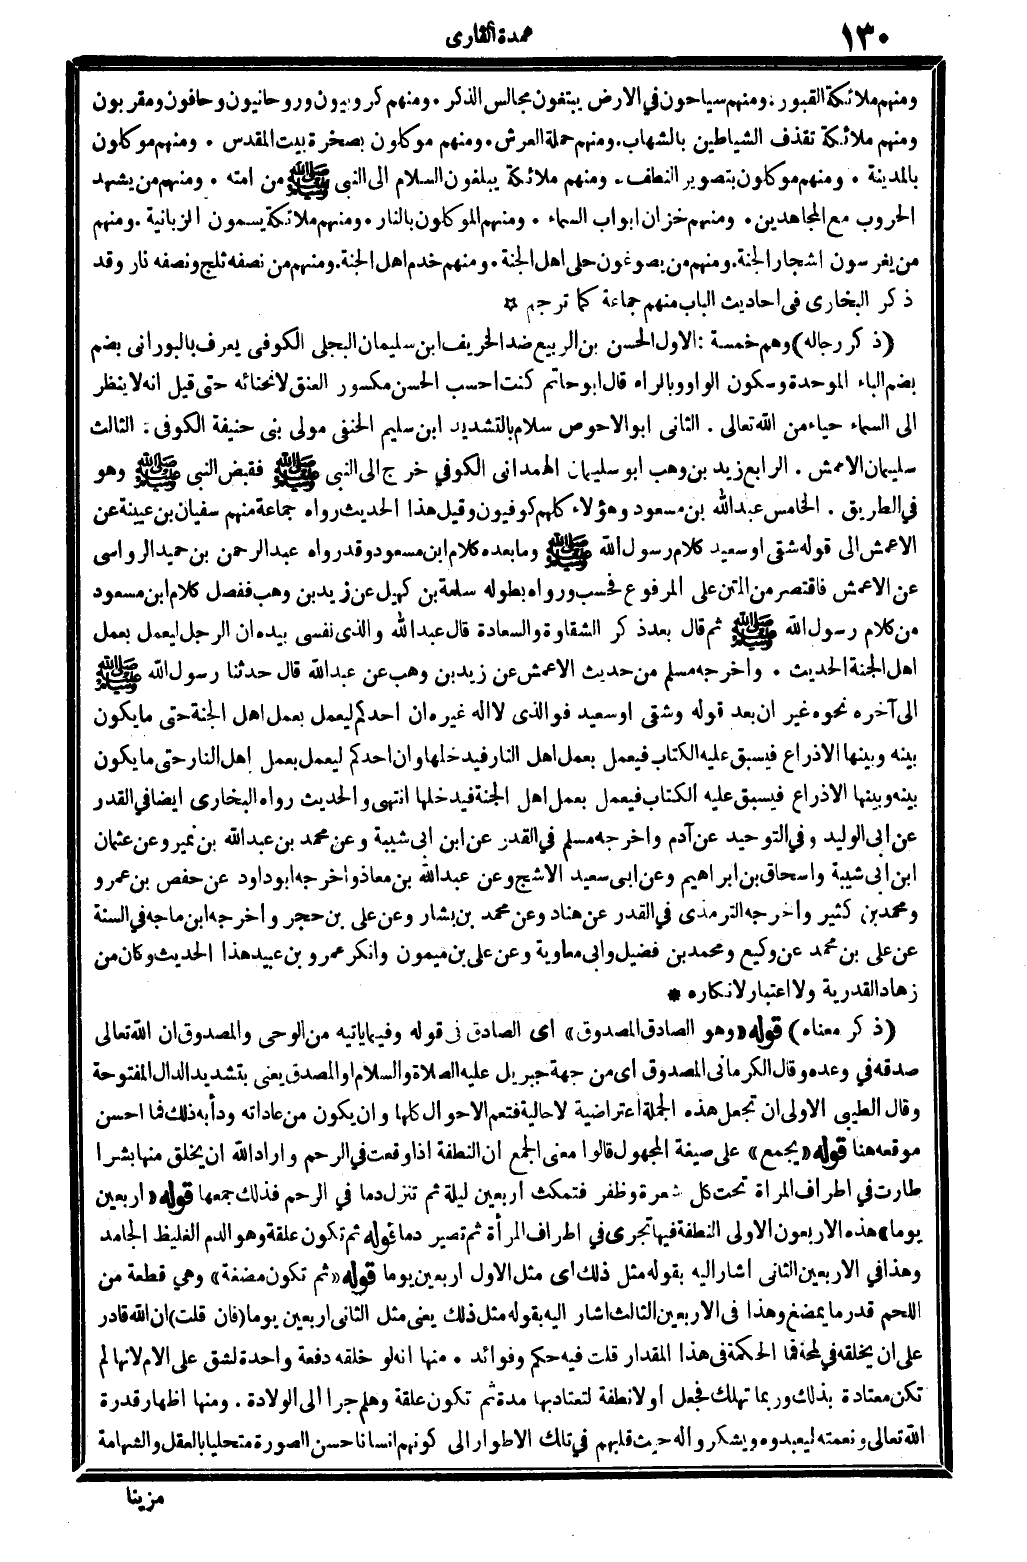 ١٣٠
عمدة القارى
ومنهم ملائكة القبور . ومنهم سياحون في الارض يبتغون مجالس الذكر . ومنهم كروبيون وروحانيون وحافون ومقربون
ومنهم ملائكة تقذف الشياطين بالشهاب . ومنهم حملة العرش . ومنهم موكلون بصخرة بيت المقدس . ومنهم موكلون
بالمدينة . ومنهم موكلون بتصوير النطف . ومنهم ملائكة يبلغون السلام الى النبى ﷺ من امته . ومنهم من يشهد
الحروب مع المجاهدين . ومنهم خزان ابواب السماء . ومنهم الموكلون بالنار . ومنهم ملائكة يسمون الزبانية . ومنهم
من يغرسون اشجار الجنة . ومنهم من يصوغون حلى اهل الجنة . ومنهم خدم اهل الجنة . ومنهم من نصفه ثلج ونصفه نار وقد
ذكر البخارى فى احاديث الباب منهم جماعة كما ترجم ✡
(ذكر رجاله) وهم خمسة : الاول الحسن بن الربيع ضد الخريف ابن سليمان البجلى الكوفى يعرف بالبورانى بضم
بضم الباء الموحدة وسكون الواو وبالراء قال ابو حاتم كنت احسب الحسن مكسور العنق لانحنائه حتى قيل انه لا ينظر
الى السماء حياء من الله تعالى . الثانى ابو الاحوص سلام بالتشديد ابن سليم الحنفى مولى بنى حنيفة الكوفى . الثالث
سليمان الاعمش . الرابع زيد بن وهب ابو سليمان الهمدانى الكوفي خرج الى النبى ﷺ فقبض النبى ﷺ وهو
في الطريق . الخامس عبدالله بن مسعود وهؤلاء كلهم كوفيون وقيل هذا الحديث رواه جماعة منهم سفيان بن عيينة عن
الاعمش الى قوله شقى او سعيد كلام رسول الله ﷺ وما بعده كلام ابن مسعود وقد رواه عبدالرحمن بن حميد الرواسى
عن الاعمش فاقتصر من المتن على المرفوع فحسب ورواه بطوله سلمة بن كهيل عن زيد بن وهب ففصل كلام ابن مسعود
من كلام رسول الله ﷺ ثم قال بعد ذكر الشقاوة والسعادة قال عبدالله والذى نفسى بيده ان الرجل ليعمل بعمل
اهل الجنة الحديث . واخرجه مسلم من حديث الاعمش عن زيد بن وهب عن عبدالله قال حدثنا رسول الله ﷺ
الى آخره نحوه غير ان بعد قوله وشقى او سعيد فوالذى لااله غيره ان احدكم ليعمل بعمل اهل الجنة حتى ما يكون
بينه وبينها الا ذراع فيسبق عليه الكتاب فيعمل بعمل اهل النار فيدخلها وان احدكم ليعمل بعمل اهل النار حتى ما يكون
بينه وبينها الا ذراع فيسبق عليه الكتاب فيعمل بعمل اهل الجنة فيدخلها انتهى والحديث رواه البخارى ايضا في القدر
عن ابى الوليد وفى التوحيد عن آدم واخرجه مسلم في القدر عن ابن ابى شيبة وعن محمد بن عبدالله بن نمير وعن عثمان
ابن ابى شيبة واسحاق بن ابراهيم وعن ابى سعيد الاشج وعن عبدالله بن معاذ واخرجه ابوداود عن حفص بن عمرو
ومحمد بن كثير واخرجه الترمذى في القدر عن هناد وعن محمد بن بشار وعن على بن حجر واخرجه ابن ماجه في السنة
عن على بن محمد عن وكيع ومحمد بن فضيل وابى معاوية وعن على بن ميمون وانكر عمرو بن عبيد هذا الحديث وكان من
زهاد القدرية ولا اعتبار لانكاره *
(ذكر معناه) قوله «وهو الصادق المصدوق» اى الصادق فى قوله وفيما ياتيه من الوحى والمصدوق ان الله تعالى
صدقه في وعده وقال الكرمانى المصدوق اى من جهة جبريل عليه الصلاة والسلام او المصدق يعنى بتشديد الدال المفتوحة
وقال الطيبى الاولى ان تجعل هذه الجملة اعتراضية لا حالية فتعم الاحوال كلها وان يكون من عاداته ودأبه ذلك فما احسن
موقعه هنا قوله «يجمع» على صيغة المجهول قالوا معنى الجمع ان النطفة اذا وقعت في الرحم واراد الله ان يخلق منها بشرا
طارت في اطراف المراة تحت كل شعرة وظفر فتمكث اربعين ليلة ثم تنزل دما في الرحم فذلك جمعها قوله «اربعين
يوما» هذه الاربعون الاولى النطفة فيها تجرى في اطراف المرأة ثم تصير دما قوله ثم تكون علقة وهو الدم الغليظ الجامد
وهذا في الاربعين الثانى اشار اليه بقوله مثل ذلك اى مثل الاول اربعين يوما قوله «ثم تكون مضغة» وهي قطعة من
اللحم قدر ما يمضغ وهذا فى الاربعين الثالث اشار اليه بقوله مثل ذلك يعنى مثل الثانى اربعين يوما (فان قلت) ان الله قادر
على ان يخلقه في لمحة فما الحكمة فى هذا المقدار قلت فيه حكم وفوائد . منها انه لو خلقه دفعة واحدة لشق على الام لانها لم
تكن معتادة بذلك وربما تهلك فجعل اولا نطفة لتعتاد بها مدة ثم تكون علقة وهلم جرا الى الولادة . ومنها اظهار قدرة
الله تعالى ونعمته ليعبدوه ويشكروا له حيث قلبهم في تلك الاطوار الى كونهم انسانا حسن الصورة متحليا بالعقل والشهامة
مزينا